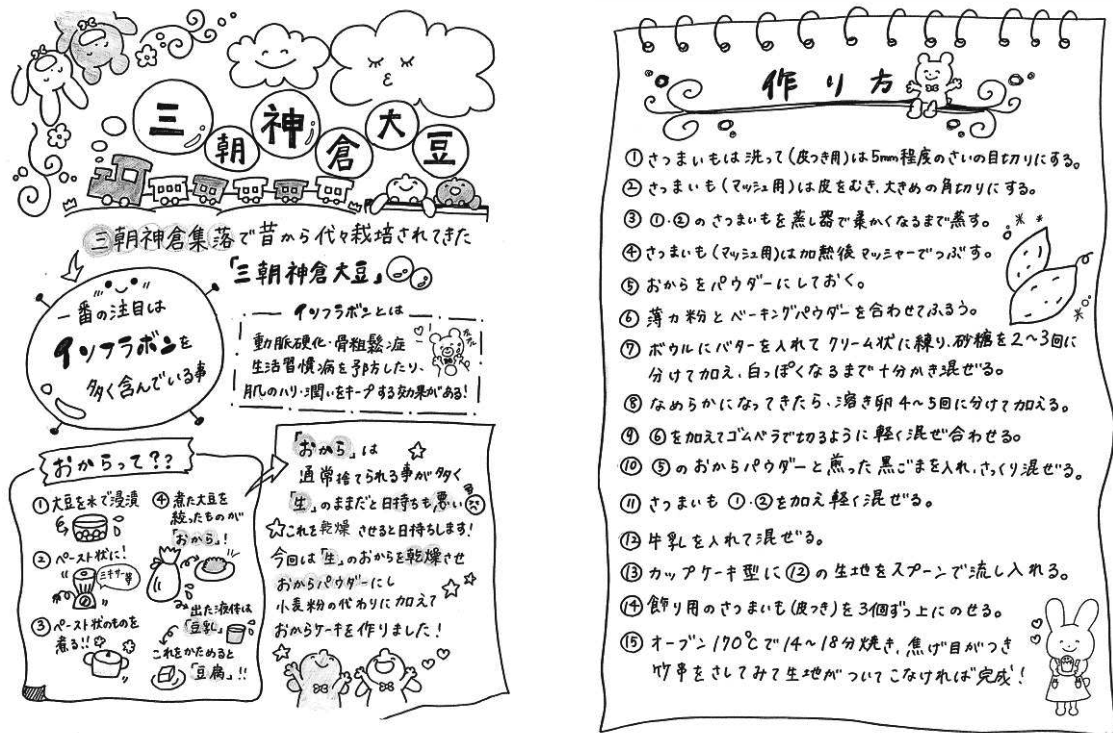 三朝神倉大豆
三朝神倉集落で昔から代々栽培されてきた
「三朝神倉大豆」
一番の注目は
イソフラボンを
多く含んでいる事
イソフラボンとは
動脈硬化・骨粗鬆症
生活習慣病を予防したり、
肌のハリ・潤いをキープする効果がある!
おからって??
①大豆を水で浸漬
②ペースト状に!
ミキサー等
③ペースト状のものを
煮る!!
④煮た大豆を
絞ったものが
「おから」!
出た液体は
「豆乳」
これをかためると
「豆腐」!!
「おから」は
通常捨てられる事が多く
「生」のままだと日持ちも悪い
これを乾燥させると日持ちします!
今回は「生」のおからを乾燥させ
おからパウダーにし
小麦粉の代わりに加えて
おからケーキを作りました!
作り方
①さつまいもは洗って(皮つき用)は5mm程度のさいの目切りにする。
②さつまいも(マッシュ用)は皮をむき、大きめの角切りにする。
③①・②のさつまいもを蒸し器で柔かくなるまで蒸す。
④さつまいも(マッシュ用)は加熱後マッシャーでつぶす。
⑤おからをパウダーにしておく。
⑥薄力粉とベーキングパウダーを合わせてふるう。
⑦ボウルにバターを入れてクリーム状に練り、砂糖を2〜3回に
分けて加え、白っぽくなるまで十分かき混ぜる。
⑧なめらかになってきたら、溶き卵4〜5回に分けて加える。
⑨⑥を加えてゴムベラで切るように軽く混ぜ合わせる。
⑩⑤のおからパウダーと煎った黒ごまを入れ、さっくり混ぜる。
⑪さつまいも①・②を加え軽く混ぜる。
⑫牛乳を入れて混ぜる。
⑬カップケーキ型に⑫の生地をスプーンで流し入れる。
⑭飾り用のさつまいも(皮つき)を3個ずつ上にのせる。
⑮オーブン170℃で14〜18分焼き、焦げ目がつき
竹串をさしてみて生地がついてこなければ完成!